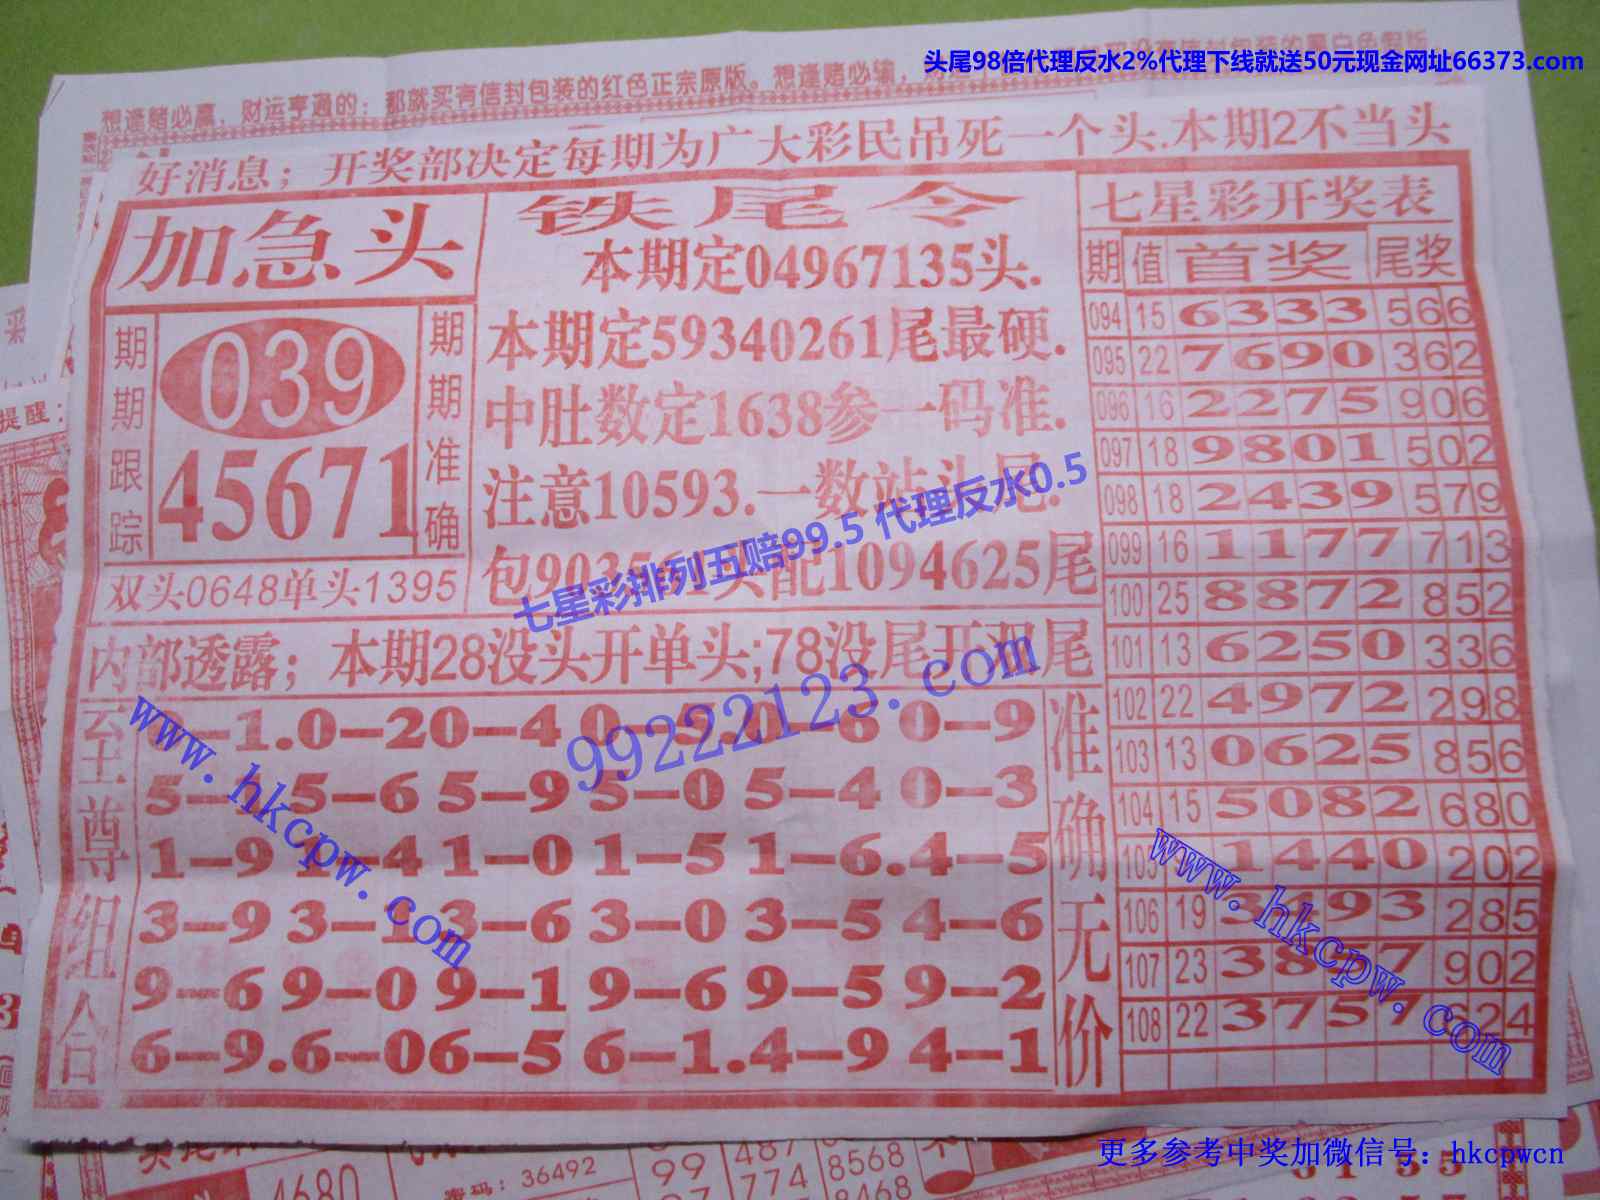 头尾98倍代理反水2%代理下线就送50元现金网址66373.com
想逢赌必赢，财运亨通的；那就买有信封包装的红色正宗原版。想逢赌必输，
好消息；开奖部决定每期为广大彩民吊死一个头.本期2不当头
加急头
期期跟踪
039
45671
期期准确
双头0648单头1395
铁尾令
本期定04967135头.
本期定59340261尾最硬.
中肚数定1638参一码准.
注意10593.一数站头尾.
尾
七星彩排列五赔99.5 代理反水0.5
内部透露；本期28没头开单头;78没尾开双尾
99222123.com
www.hkcpw.com
组合
0-1.0-2 0-4 0-5 0-6 0-9
5-1 5-6 5-9 5-0 5-4 0-3
1-9 1-4 1-0 1-5 1-6.4-5
3-9 3-1 3-6 3-0 3-5 4-6
9-6 9-0 9-1 9-6 9-5 9-2
6-9.6-0 6-5 6-1.4-9 4-1
准确无价
七星彩开奖表
期 值 首奖 尾奖
094 15 6333 566
095 22 7690 362
096 16 2275 906
097 18 9801 502
098 18 2439 579
099 16 1177 713
100 25 8872 852
101 13 6250 336
102 22 4972 298
103 13 0625 856
104 15 5082 680
105 1440 202
106 19 3493 285
107 23 902
108 22 3757 624
www.hkcpw.com
提醒：
4680
密码：36492
99
487
774
8568
8468
更多参考中奖加微信号：hkcpwcn